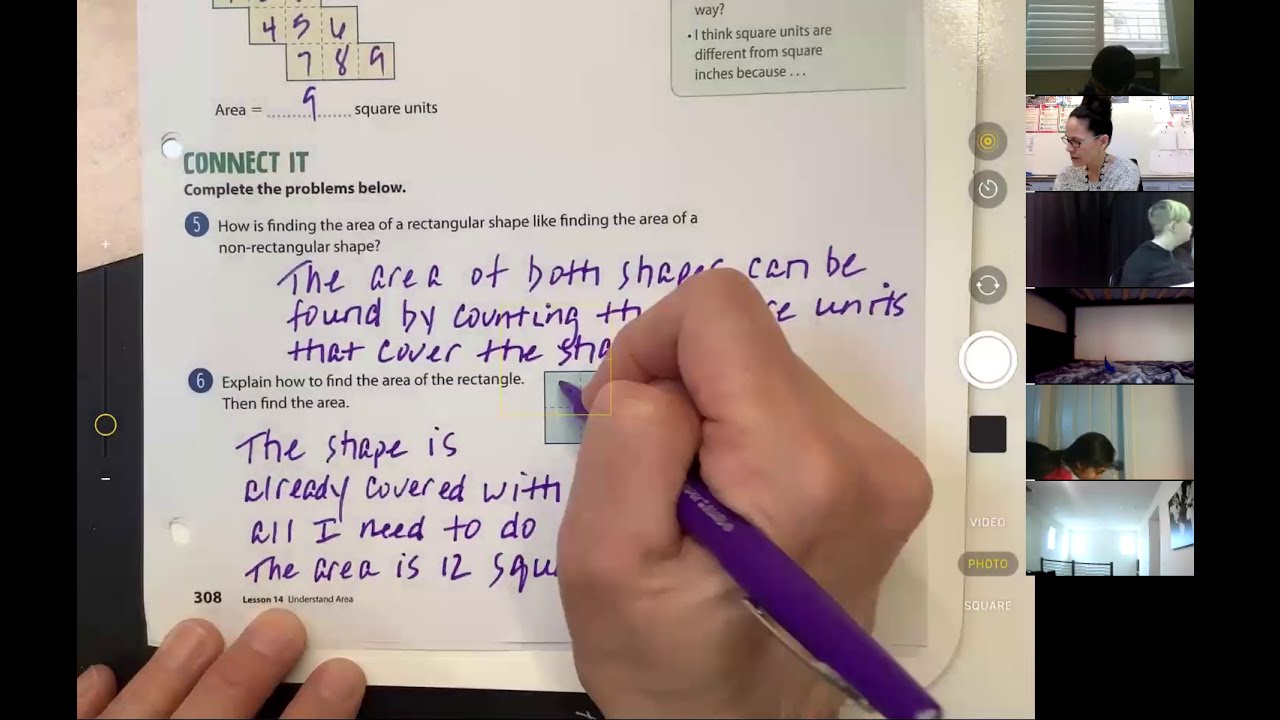 way?
• I think square units are
different from square
inches because . . .
4 5 6
7 8 9
Area = 9 square units
CONNECT IT
Complete the problems below.
5 How is finding the area of a rectangular shape like finding the area of a
non-rectangular shape?
The area of both shapes can be
found by counting units
that cover the
6 Explain how to find the area of the rectangle.
Then find the area.
The shape is
already covered with
all I need to do
The area is 12
308 Lesson 14 Understand Area
VIDEO
PHOTO
SQUARE